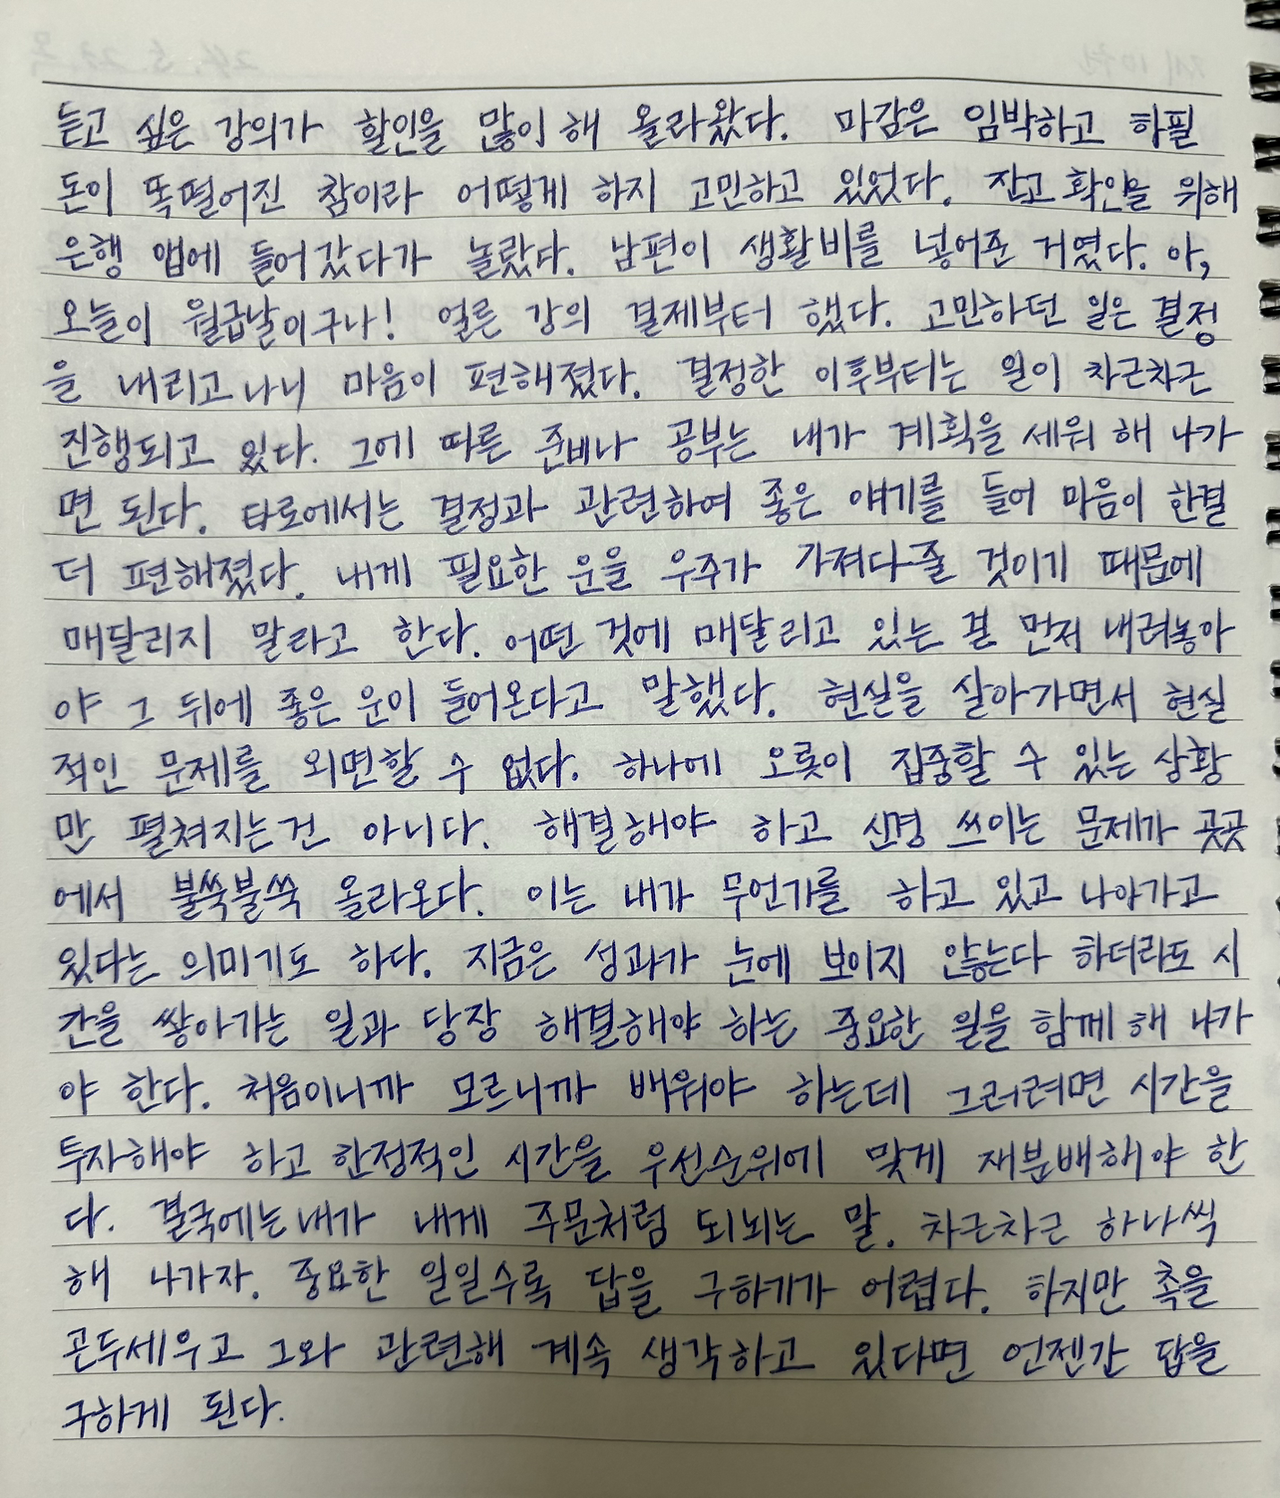 듣고 싶은 강의가 할인을 많이 해 올라왔다. 마감은 임박하고 하필
돈이 똑 떨어진 참이라 어떻게 하지 고민하고 있었다. 잔고 확인을 위해
은행 앱에 들어갔다가 놀랐다. 남편이 생활비를 넣어준 거였다. 아,
오늘이 월급날이구나! 얼른 강의 결제부터 했다. 고민하던 일은 결정
을 내리고 나니 마음이 편해졌다. 결정한 이후부터는 일이 차근차근
진행되고 있다. 그에 따른 준비나 공부는 내가 계획을 세워 해 나가
면 된다. 타로에서는 결정과 관련하여 좋은 얘기를 들어 마음이 한결
더 편해졌다. 내게 필요한 운을 우주가 가져다줄 것이기 때문에
매달리지 말라고 한다. 어떤 것에 매달리고 있는 걸 먼저 내려놓아
야 그 뒤에 좋은 운이 들어온다고 말했다. 현실을 살아가면서 현실
적인 문제를 외면할 수 없다. 하나에 오롯이 집중할 수 있는 상황
만 펼쳐지는 건 아니다. 해결해야 하고 신경 쓰이는 문제가 곳곳
에서 불쑥불쑥 올라온다. 이는 내가 무언가를 하고 있고 나아가고
있다는 의미기도 하다. 지금은 성과가 눈에 보이지 않는다 하더라도 시
간을 쌓아가는 일과 당장 해결해야 하는 중요한 일을 함께 해 나가
야 한다. 처음이니까 모르니까 배워야 하는데 그러려면 시간을
투자해야 하고 한정적인 시간을 우선순위에 맞게 재분배해야 한
다. 결국에는 내가 내게 주문처럼 되뇌는 말. 차근차근 하나씩
해 나가자. 중요한 일일수록 답을 구하기가 어렵다. 하지만 촉을
곤두세우고 그와 관련해 계속 생각하고 있다면 언젠간 답을
구하게 된다.